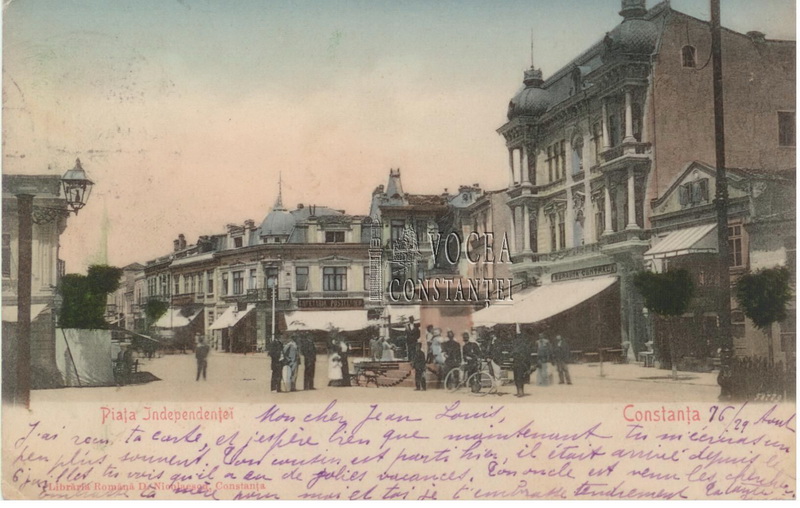 VOCEA
CONSTANTEI
Piața Independenței
Constanța
Mon cher Jean Louis,
J'ai reçu ta carte, et j'espère bien que maintenant tu m'écriras un
peu plus souvent. Ton cousin est parti hier, il était arrivé depuis le
6 juillet, tu vois qu'il a eu de jolies vacances. Ton oncle est venu les
ta mère pour moi et toi je t'embrasse tendrement
Librăria Română D. Nicolaescu, Constanța